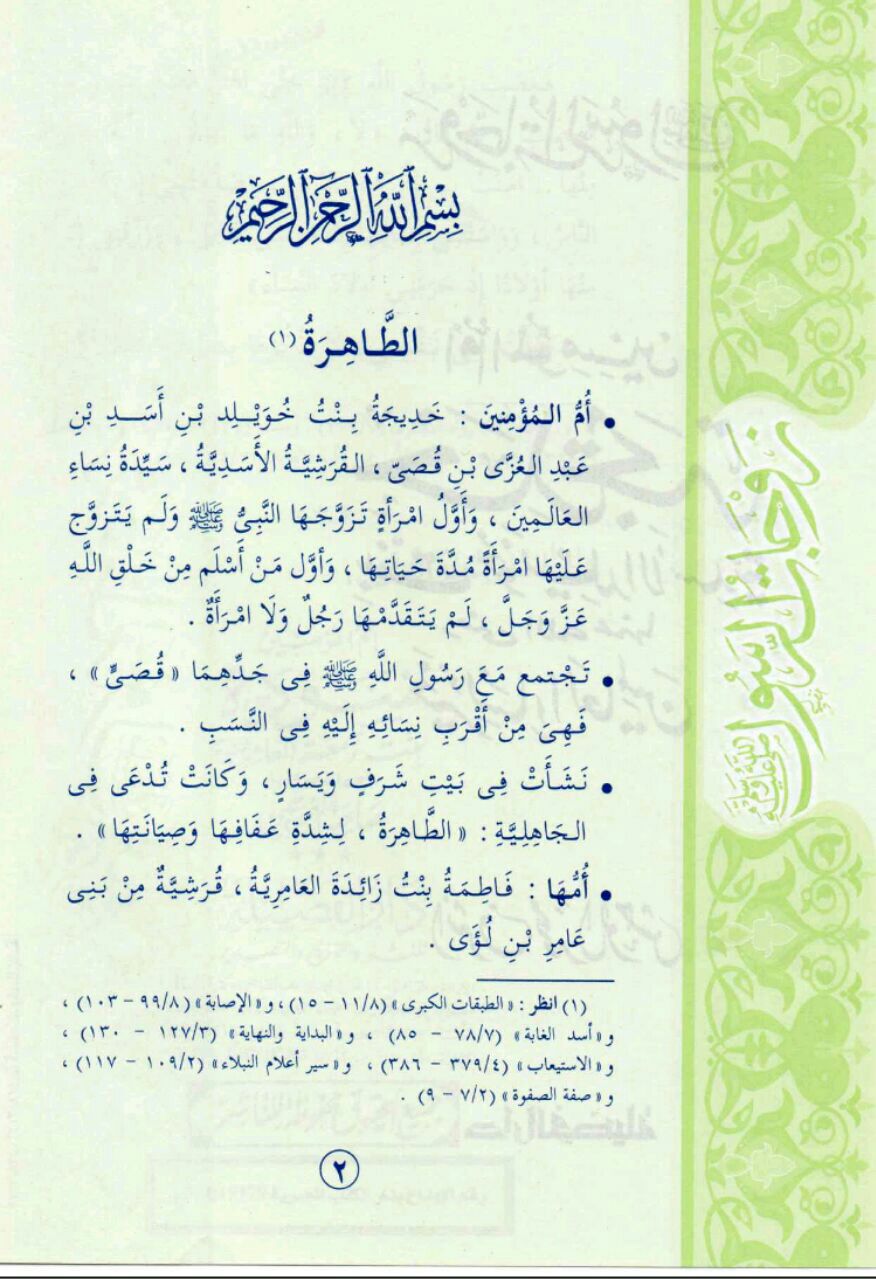 بِسْمِ اللَّهِ الرَّحْمَنِ الرَّحِيمِ
الطَّاهِرَةُ (١)
• أُمُّ المُؤْمِنِينَ : خَدِيجَةُ بِنْتُ خُوَيْلِد بْنِ أَسَدِ بْنِ
عَبْدِ العُزَّى بْنِ قُصَىّ ، القُرَشِيَّةُ الأَسَدِيَّةُ ، سَيِّدَةُ نِسَاءِ
العَالَمِينَ ، وَأَوَّلُ امْرَأةٍ تَزَوَّجَهَا النَّبِىُّ ﷺ وَلَم يَتَزوَّج
عَلَيْهَا امْرَأَةً مُدَّةَ حَيَاتِهَا ، وَأوَّل مَنْ أَسْلَم مِنْ خَلْقِ اللَّهِ
عَزَّ وَجَلَّ ، لَمْ يَتَقَدَّمْهَا رَجُلٌ وَلَا امْرَأَةٌ .
• تَجْتمع مَعَ رَسُولِ اللَّهِ ﷺ فِى جَدِّهِمَا « قُصَىٍّ » ،
فَهِىَ مِنْ أَقْرَبِ نِسَائِهِ إِلَيْهِ فِى النَّسَبِ .
• نَشَأَتْ فِى بَيْتِ شَرَفٍ وَيَسَارٍ ، وَكَانَتْ تُدْعَى فِى
الجَاهِلِيَّةِ : « الطَّاهِرَةُ ، لِشِدَّةِ عَفَافِهَا وَصِيَانَتِهَا » .
• أُمُّهَا : فَاطِمَةُ بِنْتُ زَائِدَةَ العَامِرِيَّةُ ، قُرَشِيَّةٌ مِنْ بَنِى
عَامِرِ بْنِ لُؤَى .
(١) انظر : « الطبقات الكبرى » (١١/٨ – ١٥) ، و « الإصابة » (٩٩/٨ – ١٠٣) ،
و « أسد الغابة » (٧٨/٧ – ٨٥) ، و « البداية والنهاية » (١٢٧/٣ – ١٣٠) ،
و « الاستيعاب » (٣٧٩/٤ – ٣٨٦) ، و « سير أعلام النبلاء » (١٠٩/٢ – ١١٧) ،
و « صفة الصفوة » (٧/٢ – ٩) .
٢
زوجات الرسول صلى الله عليه وسلم